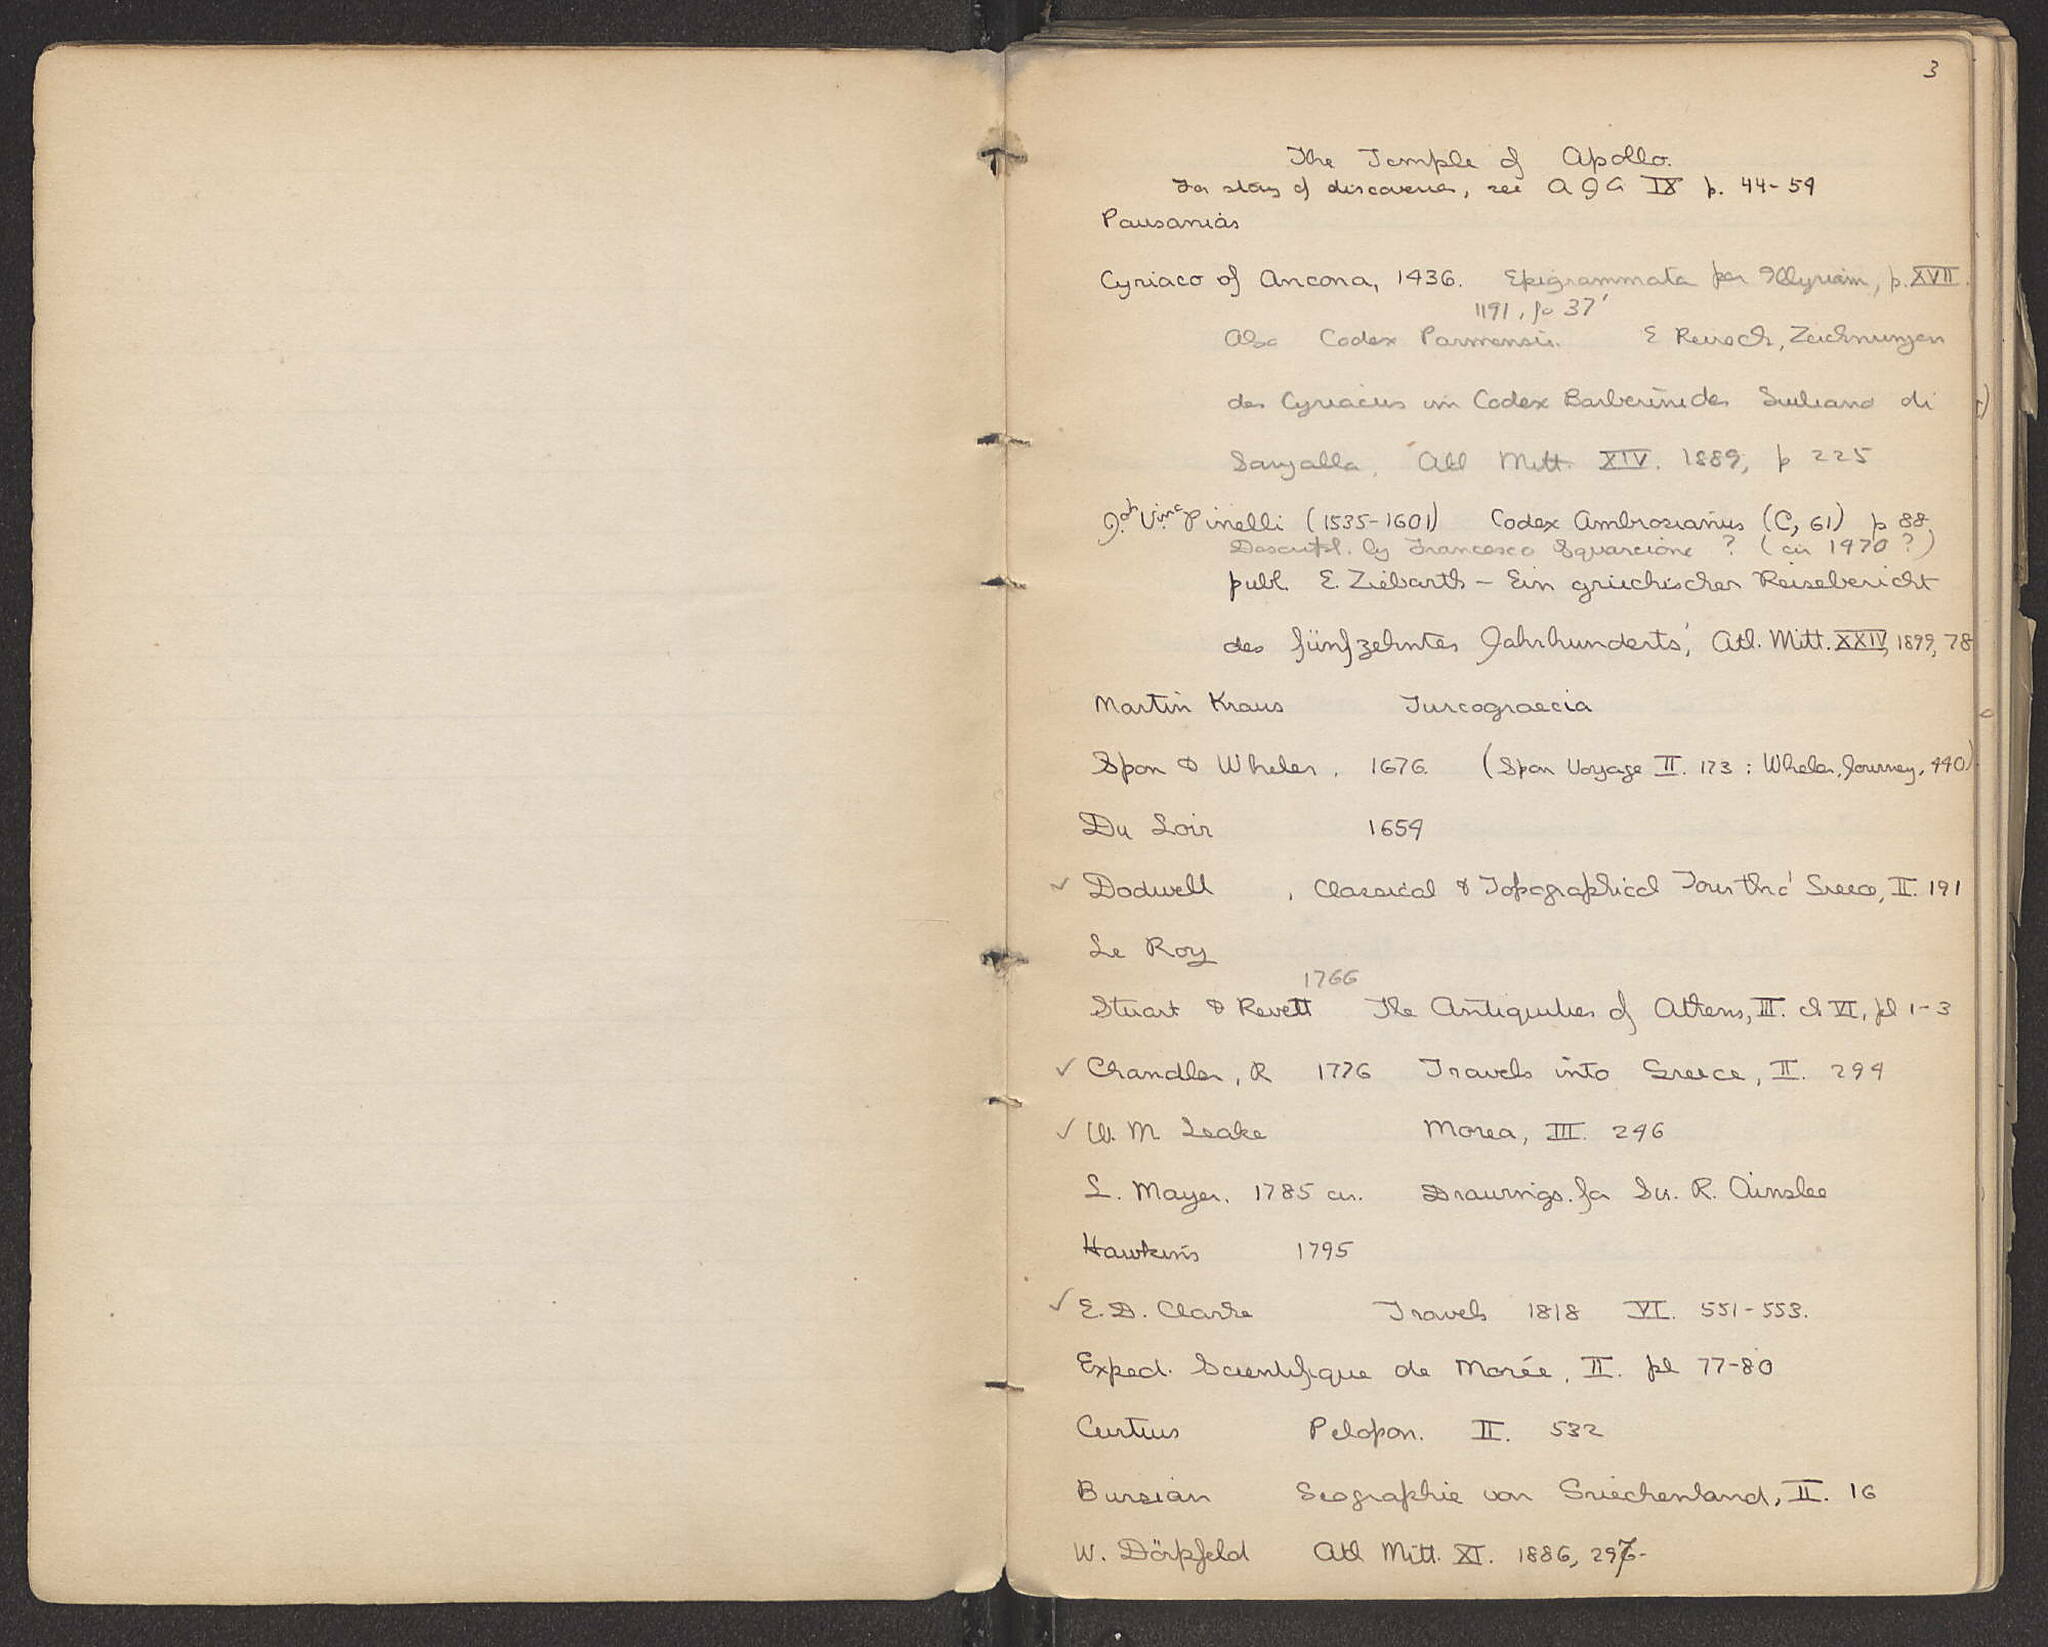 3
The Temple of Apollo.
For story of discoveries, see A J A IX p. 44-54
Pausanias
Cyriaco of Ancona, 1436. Epigrammata per Illyricum, p. XVII.
1191, fo 37'
Also Codex Parmensis. E Reisch, Zeichnungen
des Cyriacus im Codex Barberini des Giuliano di
Sangallo, Ath Mitt. XIV. 1889, p 225
Vinc Pinelli (1535-1601) Codex Ambrosianus (C, 61) p 88
Descript. by Francesco Squarcione ? (cir 1470 ?)
publ. E. Ziebarth - Ein griechischer Reisebericht
des fünfzehntes Jahrhunderts', Ath. Mitt. XXIV, 1899, 78
Martin Kraus Turcograecia
Spon & Wheler. 1676. (Spon Voyage II. 173 : Wheler, Journey, 440)
Du Loir 1654
✓ Dodwell , Classical & Topographical Tour thro' Greece, II. 191
Le Roy
1766
Stuart & Revett The Antiquities of Athens, III. ch VI, pl 1-3
✓ Chandler, R 1776 Travels into Greece, II. 294
✓ W. M Leake Morea, III. 246
L. Mayer. 1785 cir. Drawings for Sir. R. Ainslee
Hawkins 1795
✓ E. D. Clarke Travels 1818 VI. 551-553.
Exped. Scientifique de Morée, II. pl 77-80
Curtius Pelopon. II. 532
Bursian Geographie von Griechenland, II. 16
W. Dörpfeld Ath Mitt. XI. 1886, 297-